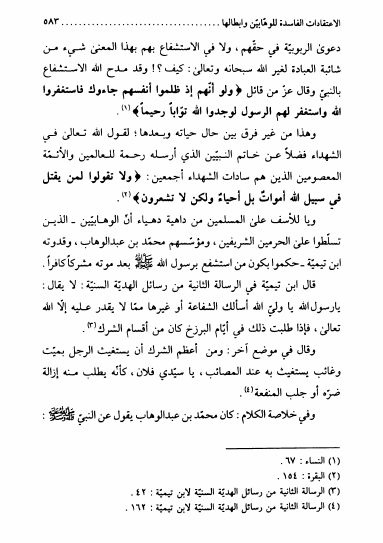 الاعتقادات الفاسدة للوهّابيّن وابطالها ........................................ ٥٨٣
دعوىٰ الربوبيّة في حقّهم ، ولا في الاستشفاع بهم بهذا المعنىٰ شيء من
شائبة العبادة لغير الله سبحانه وتعالىٰ : كيف ؟ ! وقد مدح الله الاستشفاع
بالنبيّ وقال عزّ من قائل ﴿ ولو أنّهم إذ ظلموا أنفسهم جاءوك فاستغفروا
الله واستغفر لهم الرسول لوجدوا الله توّاباً رحيماً ﴾ (١) .
وهذا من غير فرق بين حال حياته وبعدها ؛ لقول الله تعالىٰ في
الشهداء فضلاً عن خاتم النبيّين الذي أرسله رحمة للعالمين والأئمّة
المعصومين الذين هم سادات الشهداء أجمعين : ﴿ ولا تقولوا لمن يقتل
في سبيل الله أمواتٌ بل أحياءٌ ولكن لا تشعرون ﴾ (٢) .
ويا للأسف علىٰ المسلمين من داهية دهياء أنّ الوهابيّين ـ الذين
تسلّطوا علىٰ الحرمين الشريفين ، ومؤسّسهم محمّد بن عبدالوهاب ، وقدوته
ابن تيميّة ـ حكموا بكون من استشفع برسول الله ﷺ بعد موته مشركاً كافراً .
قال ابن تيميّة في الرسالة الثانية من رسائل الهديّة السنيّة : لا يقال :
يارسول الله يا وليّ الله أسألك الشفاعة أو غيرها ممّا لا يقدر عليه إلّا الله
تعالىٰ ، فإذا طلبت ذلك في أيّام البرزخ كان من أقسام الشرك (٣) .
وقال في موضع آخر : ومن أعظم الشرك أن يستغيث الرجل بميّت
وغائب يستغيث به عند المصائب ، يا سيّدي فلان ، كأنّه يطلب منه إزالة
ضرّه أو جلب المنفعة (٤) .
وفي خلاصة الكلام : كان محمّد بن عبدالوهاب يقول عن النبيّ ﷺ :
(١) النساء : ٦٧ .
(٢) البقرة : ١٥٤ .
(٣) الرسالة الثانية من رسائل الهديّة السنيّة لابن تيميّة : ٤٢ .
(٤) الرسالة الثانية من رسائل الهديّة السنيّة لابن تيميّة : ١٦٢ .